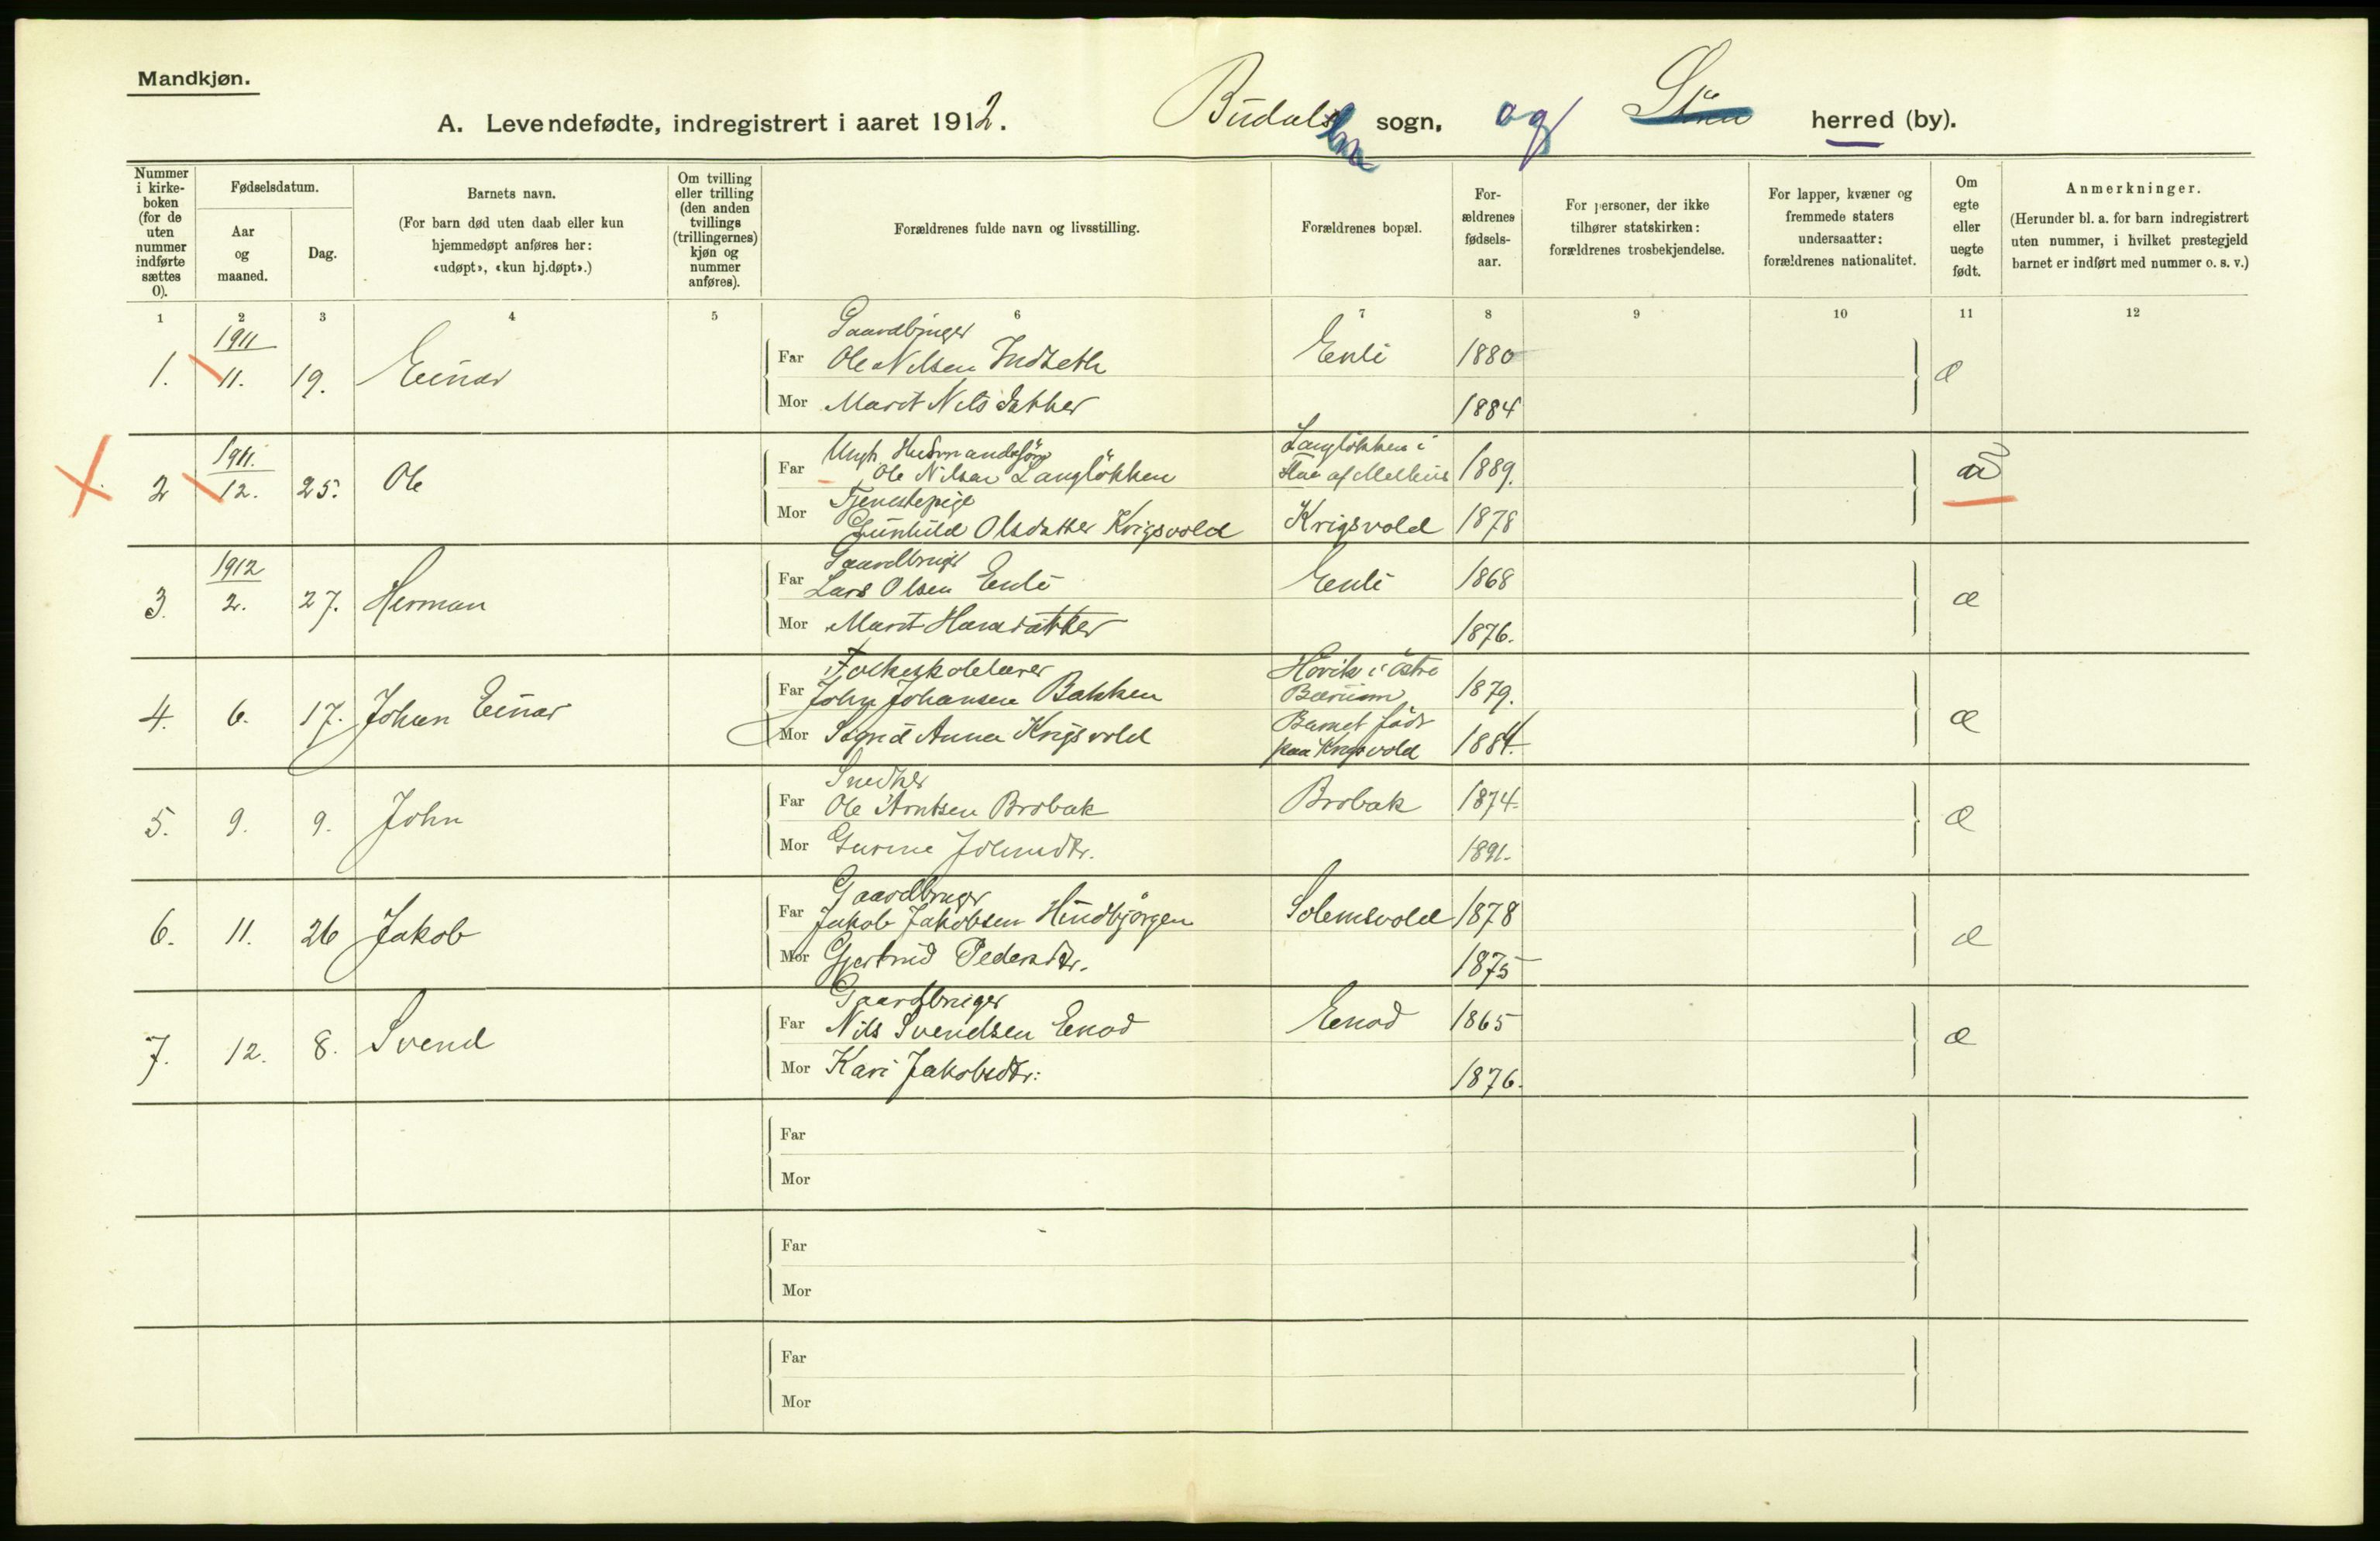 Mandkjøn.
A. Levendefødte, indregistrert i aaret 1912. Budals sogn, og herred (by).
Nummer i kirke-boken (for de uten nummer indførte sættes 0).
Fødselsdatum.
Aar og maaned.
Dag.
Barnets navn.
(For barn død uten daab eller kun hjemmedøpt anføres her: «udøpt», «kun hj.døpt».)
Om tvilling eller trilling (den anden tvillings (trillingernes) kjøn og nummer anføres).
Forældrenes fulde navn og livsstilling.
Forældrenes bopæl.
For-ældrenes fødsels-aar.
For personer, der ikke tilhører statskirken: forældrenes trosbekjendelse.
For lapper, kvæner og fremmede staters undersaatter: forældrenes nationalitet.
Om egte eller uegte født.
Anmerkninger.
(Herunder bl. a. for barn indregistrert uten nummer, i hvilket prestegjeld barnet er indført med nummer o. s. v.)
1 2 3 4 5 6 7 8 9 10 11 12
1911 Gaardbruger
1. 11. 19. Einar Far Ole Nilsen Indseth Enli 1880 æ
Mor Marit Nilsdatter 1884
1911. Ungk. Husmandssøn Langløkken i
2 12. 25. Ole Far Ole Nilsen Langløkken Flaa af Melhus 1889.
Tjenestepige
Mor Gunhild Olsdatter Krigsvold Krigsvold 1878
1912 Gaardbruger
3. 2. 27. Herman Far Lars Olsen Enli Enli 1868 æ
Mor Marit Hansdatter 1876.
Folkeskolelærer Høvik i Østre
4. 6. 17. Johan Einar Far John Johansen Bakken Bærum 1879. æ
Barnet født
Mor Sigrid Anna Krigsvold paa Krigsvold 1884.
Snedker
5. 9. 9. John Far Ole Arntsen Brobak Brobak 1874. æ
Mor Gurine Johnsdtr. 1891.
Gaardbruger
6. 11. 26 Jakob Far Jakob Jakobsen Hindbjørgen Solemsvold 1878 æ
Mor Gjertrud Pedersdtr. 1875
Gaardbruger
7. 12. 8. Svend Far Nils Svendsen Enod Enod 1865 æ
Mor Kari Jakobsdtr: 1876.
Far
Mor
Far
Mor
Far
Mor